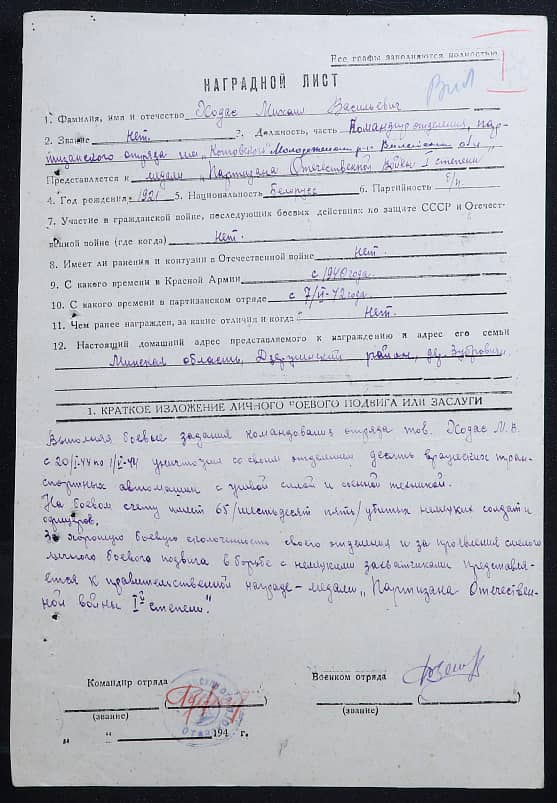 Все графы заполняются полностью
НАГРАДНОЙ ЛИСТ
Вил
1. Фамилия, имя и отчество Ходас Михаил Васильевич
2. Звание Нет. 3. Должность, часть Командир отделения, пар-
тизанского отряда им. "Котовского" Молодеченского р-на Вилейской обл.
Представляется к медали „Партизана Отечественной войны I степени"
4. Год рождения 1921 5. Национальность Белорусс 6. Партийность б/п.
7. Участие в гражданской войне, последующих боевых действиях по защите СССР и Отечест-
венной войне (где когда) Нет.
8. Имеет ли ранения и контузии в Отечественной войне Нет.
9. С какого времени в Красной Армии с 1940 года.
10. С какого времени в партизанском отряде с 7/VI-42 года.
11. Чем ранее награжден, за какие отличия и когда Нет.
12. Настоящий домашний адрес представляемого к награждению и адрес его семьи
Минская область, Дзержинский район, дер.
1. КРАТКОЕ ИЗЛОЖЕНИЕ ЛИЧНОГО БОЕВОГО ПОДВИГА ИЛИ ЗАСЛУГИ
Выполняя боевые задания командования отряда тов. Ходас М. В.
с по уничтожил со своим отделением десять вражеских тран-
спортных автомашин с живой силой и военной техникой.
На боевом счету имеет 65 /шестьдесят пять/ убитых немецких солдат и
офицеров.
За хорошую боевую сплоченность своего отделения и за проявления смелого
личного боевого подвига в борьбе с немецкими захватчиками представля-
ется к правительственной награде – медали „Партизана Отечествен-
ной войны Iй степени".
Командир отряда
Военком отряда
(звание)
(звание)
„ „ 194 г.